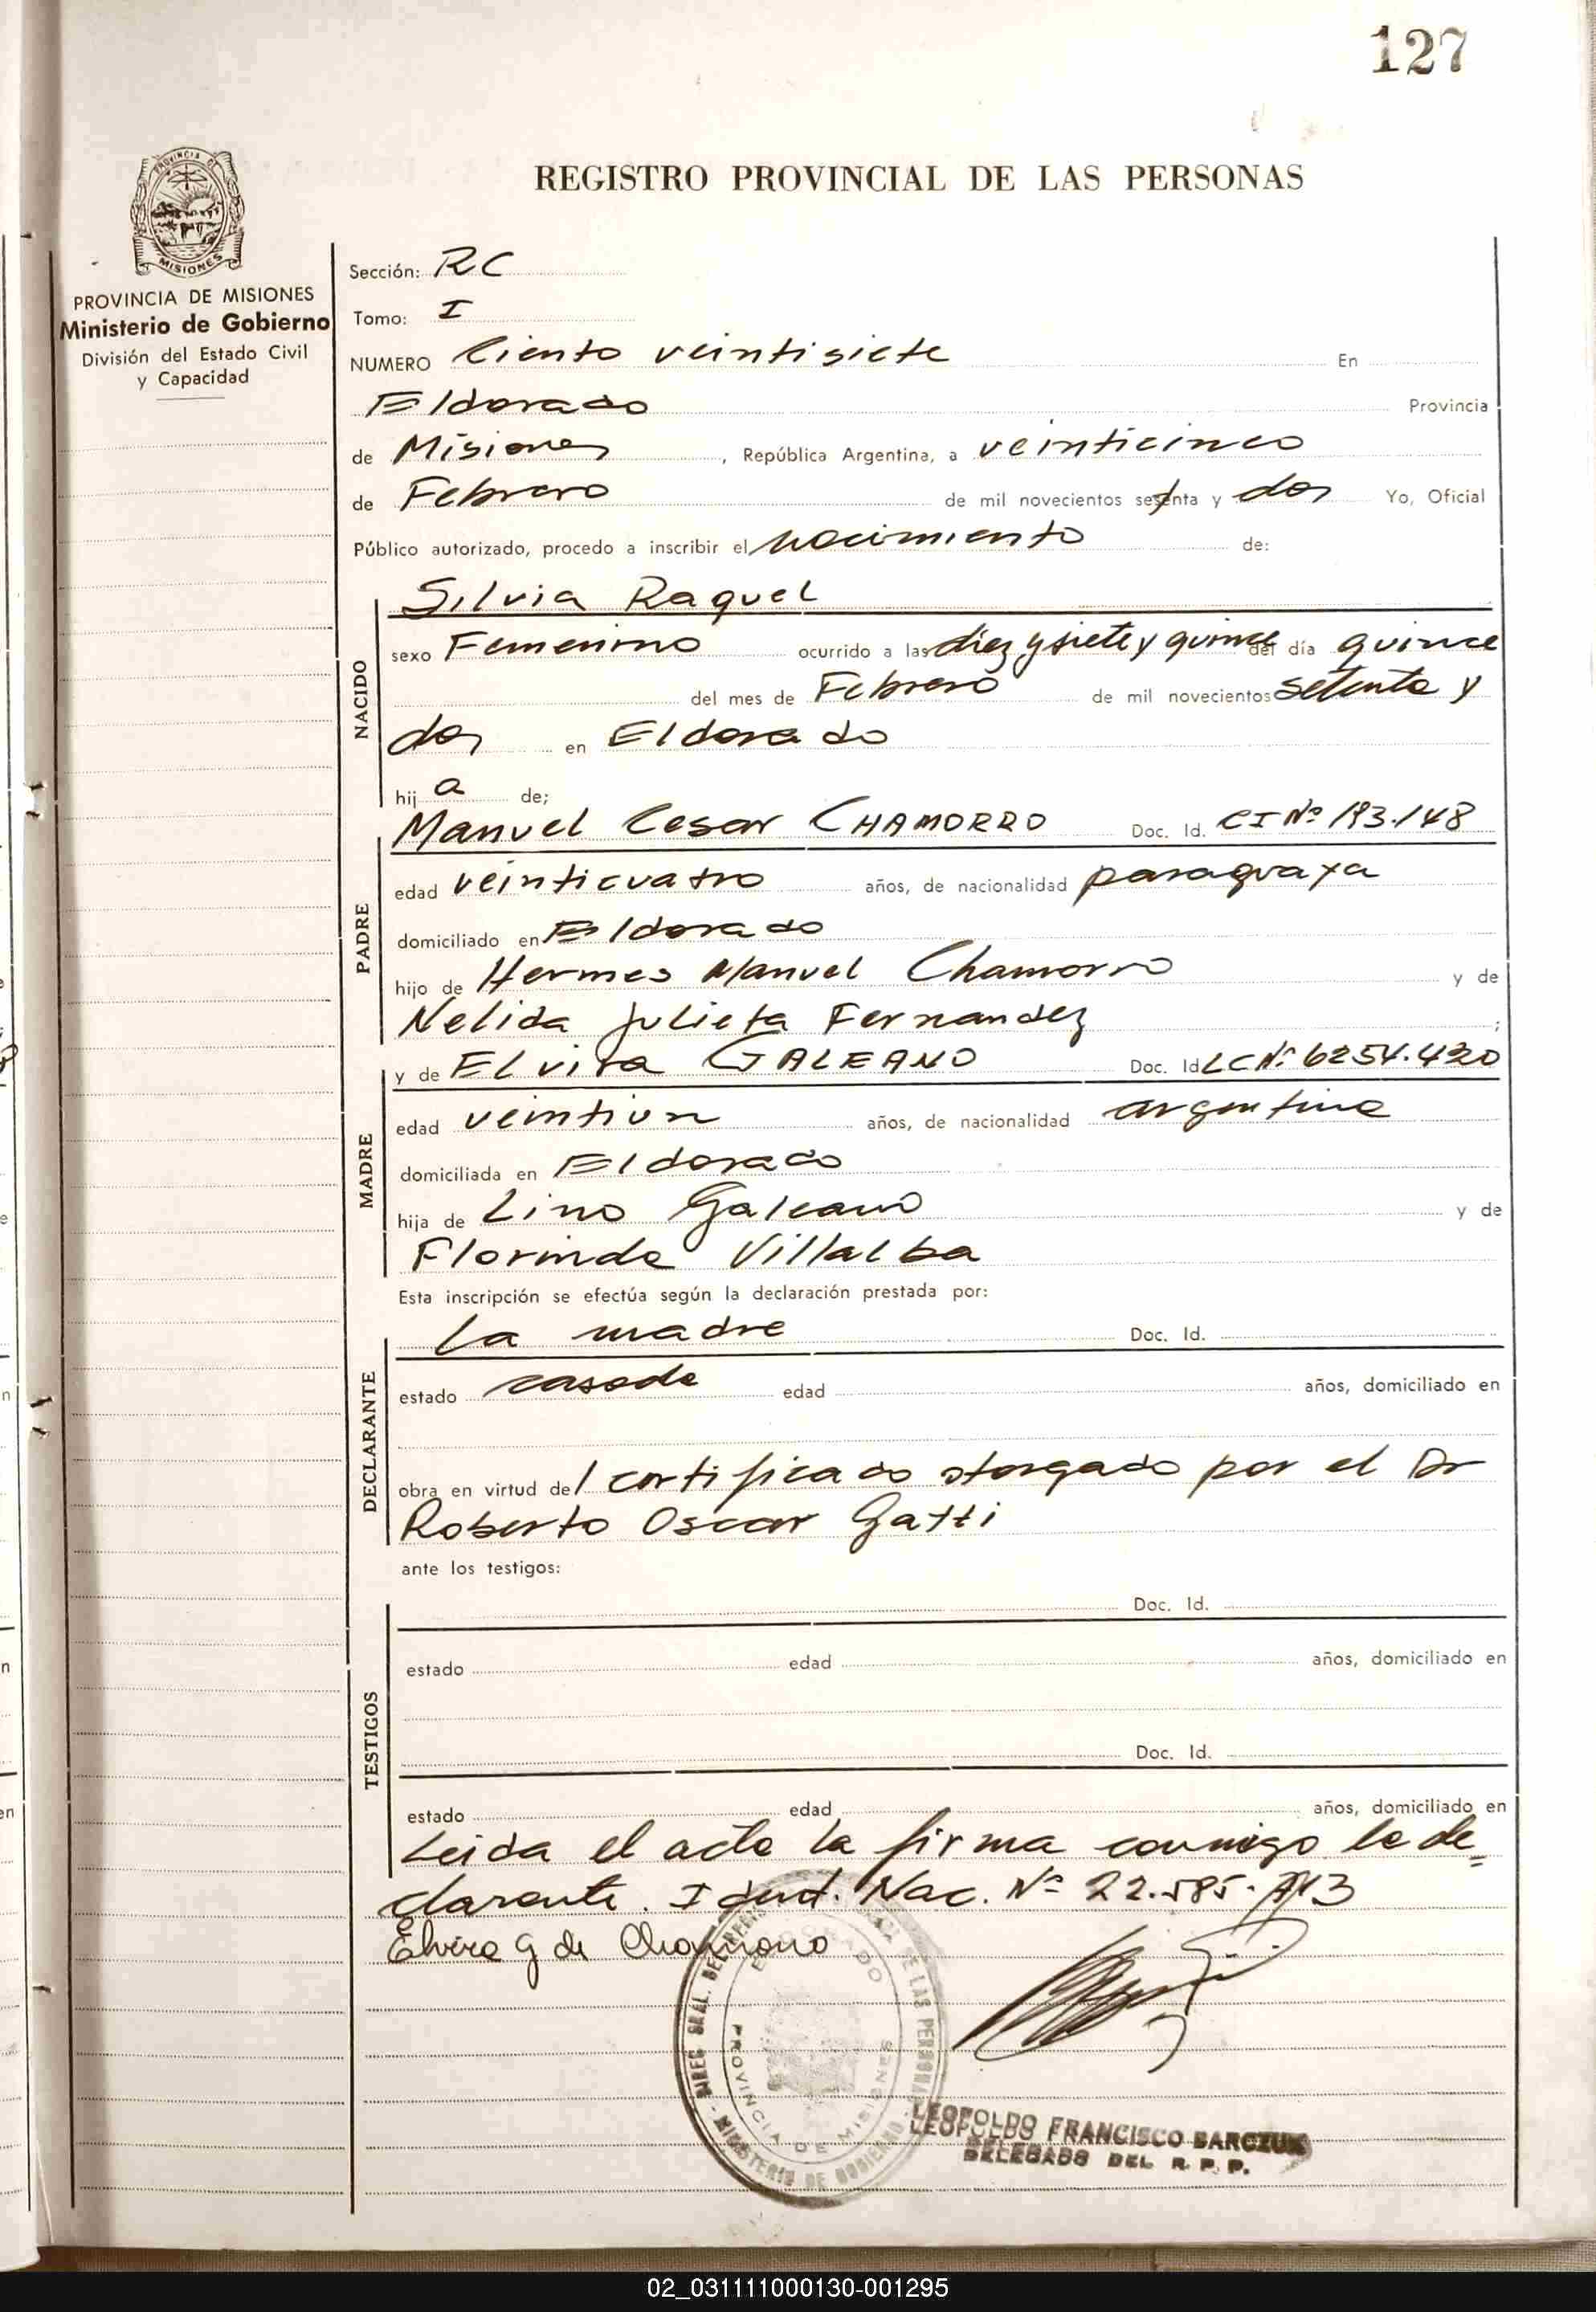 127
REGISTRO PROVINCIAL DE LAS PERSONAS
PROVINCIA DE MISIONES
Ministerio de Gobierno
División del Estado Civil
y Capacidad
Sección: RC
Tomo: I
NUMERO Ciento veintisiete En
Eldorado Provincia
de Misiones, República Argentina, a veinticinco
de Febrero de mil novecientos setenta y dos Yo, Oficial
Público autorizado, procedo a inscribir el nacimiento de:
NACIDO
Silvia Raquel
sexo Femenino ocurrido a las diez y siete y quince del día quince
del mes de Febrero de mil novecientos setenta y
dos en Eldorado
hija de;
PADRE
Manuel Cesar CHAMORRO Doc. Id. CI Nº 193.148
edad veinticuatro años, de nacionalidad paraguaya
domiciliado en Eldorado
hijo de Hermes Manuel Chamorro y de
Nelida Julieta Fernandez;
MADRE
y de Elvira GALEANO Doc. Id LC Nº 6254.420
edad veintiun años, de nacionalidad argentina
domiciliada en Eldorado
hija de Lino Galeano y de
Florinda Villalba
Esta inscripción se efectúa según la declaración prestada por:
DECLARANTE
La madre Doc. Id.
estado casada edad años, domiciliado en
obra en virtud del certificado otorgado por el Dr
Roberto Oscar Gatti
ante los testigos:
TESTIGOS
Doc. Id.
estado edad años, domiciliado en
Doc. Id.
estado edad años, domiciliado en
Leida el acta la firma conmigo la de=
clarante. Ident. Nac. Nº 22.585.
Elvira G de Chamorro
PROVINCIA DE MISIONES
MINISTERIO DE GOBIERNO
LEOPOLDO FRANCISCO BARCZUK
DELEGADO DEL R. P. P.
02_031111000130-001295